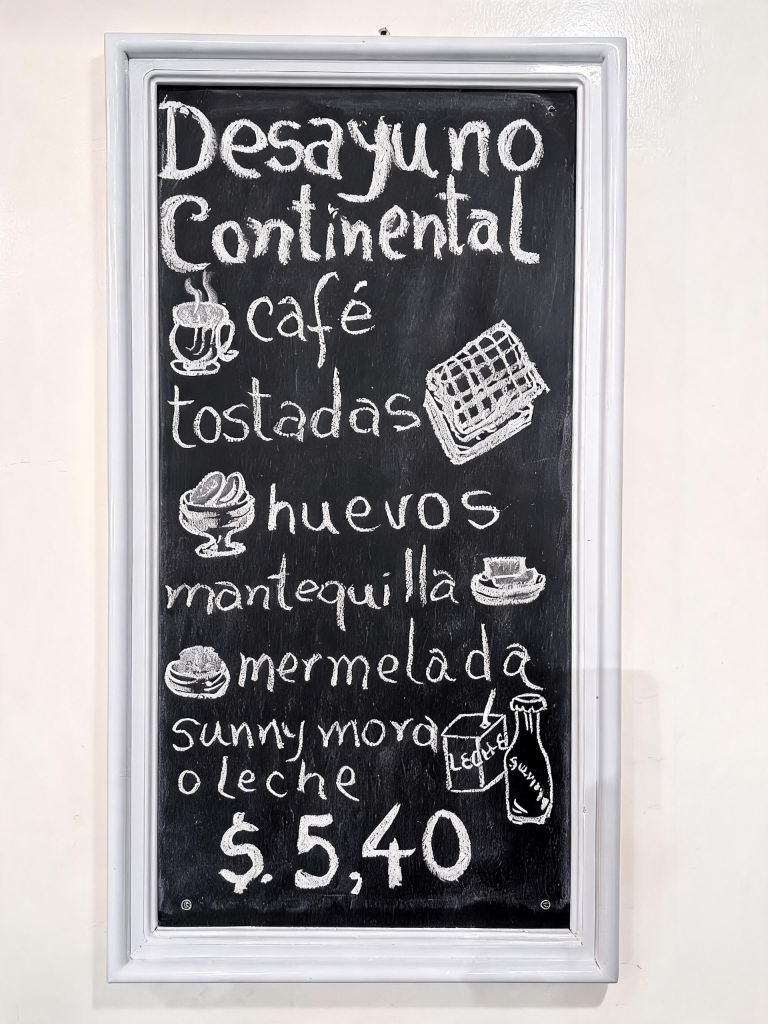 Desayuno
Continental
café
tostadas
huevos
mantequilla
mermelada
sunny mora
o leche
LECHE
$. 5,40